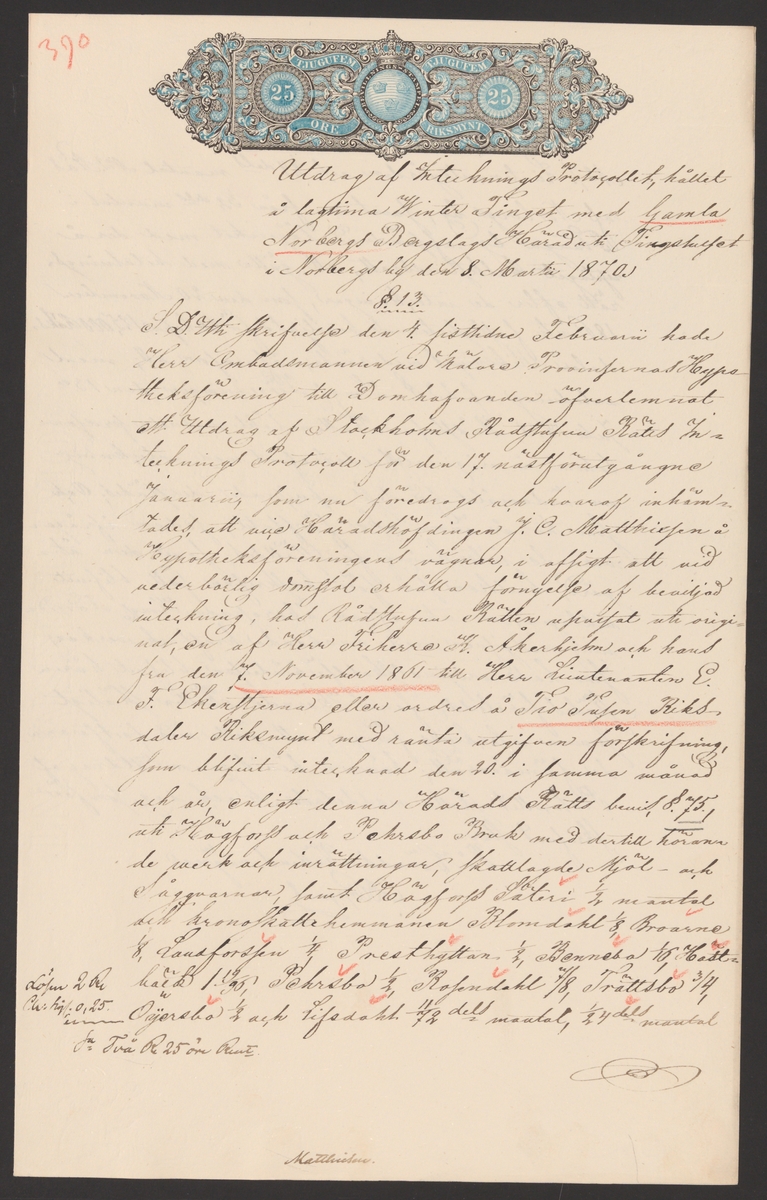 390
TJUGUFEM TJUGUFEM
25 25
ÖRE RIKSMYNT
Utdrag af Intecknings Protocollet, hållet
å lagtima Winter Tinget med Gamla
Norbergs Bergslags Härad uti Tingshuset
i Norbergs by den 8. Martii 1870.
§. 13.
S. D. Uti skrifvelse den 4. sistlidne Februarii hade
Herr Ombudsmannen vid Mälare Provinsernas Hypo-
theksförening till Domhafvanden öfverlemnat
ett Utdrag af Stockholms Rådstufvu Rätts In-
tecknings Protocoll för den 17. nästförutgångne
Januarii, som nu föredrogs och hvaraf inhäm-
tades, att vice Häradshöfdingen J. C. Matthiesen å
Hypotheksföreningens vägnar, i afsigt att vid
vederbörlig domstol erhålla förnyelse af beviljad
inteckning, hos Rådstufvu Rätten uppvist uti origi-
nal, en af Herr Friherre Åkerhjelm och hans
fru den 7. November 1861 till Herr Lieutenanten E.
F. Ekenstjerna eller ordres å Tio Tusen Riks-
daler Riksmynt med ränta utgifven förskrifning,
som blifvit intecknad den 20. i samma månad
och år, enligt denna Härads Rätts bevis, §. 75,
uti Högforss och Pehrsbo Bruk med dertill höran-
de werk och inrättningar, skattlagde Mjöl- och
Sågqvarnar, samt Högforss Säteri 1/2 mantal
och kronoskattehemmanen Blomdahl 1/8, Broarne
1/8, Landforssen 1/4, Presthyttan 1/2, Bennebo 1/16, Häst-
bäck Pehrsbo 1/2, Rosendahl Trättsbo 3/4,
Öijersbo 1/2 och Lifsdahl dels mantal, 1/24 dels mantal
Lösen 2 Rd
Ch: sig: 0,25.
Sa Två Rd 25 öre Rmt
Matthiesen.